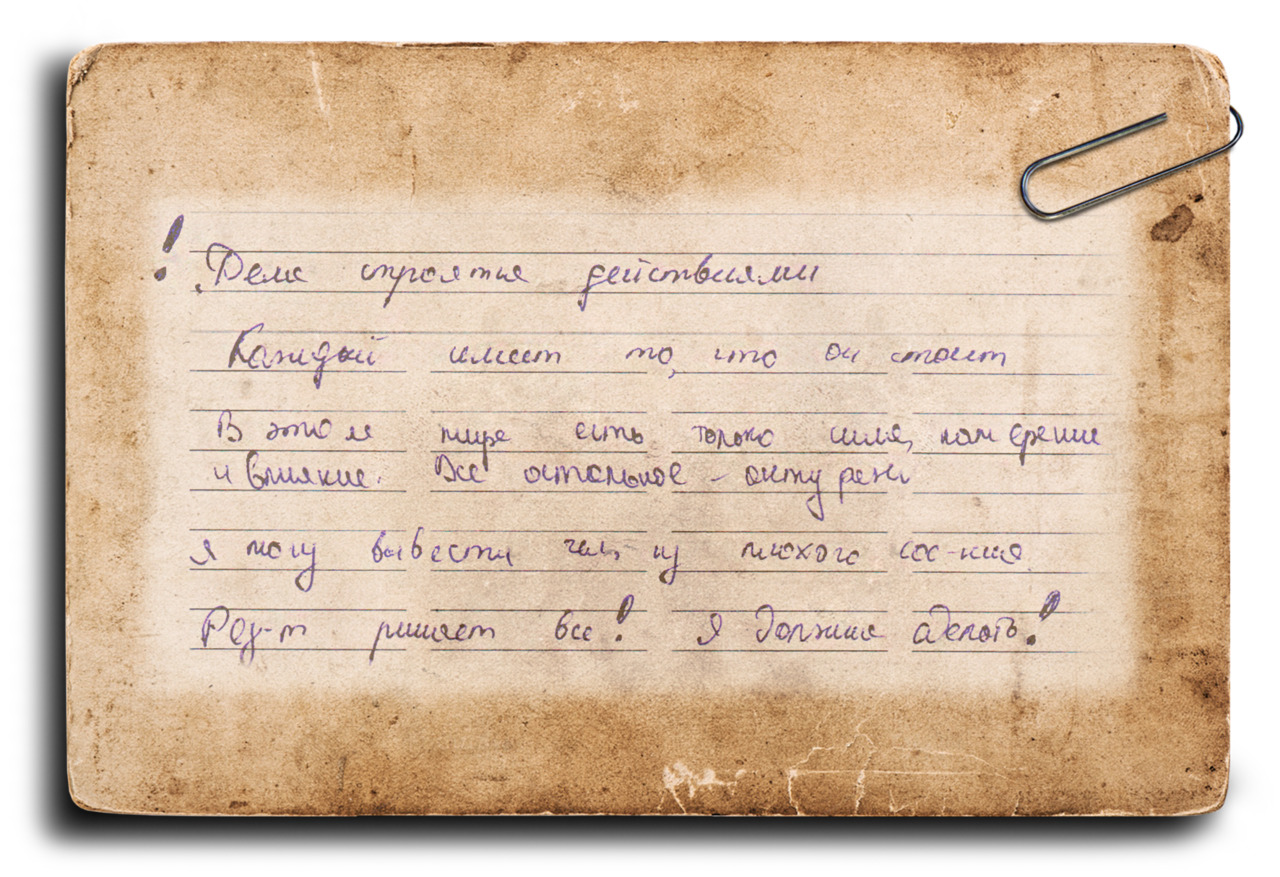 ! Дела строятся действиями
Каждый имеет то, что он стоит
В этом мире есть только сила, намерение
и влияние. Все остальное -
Я могу вывести чел. из плохого сос-ния
Рез-т решает все! Я должна сделать!